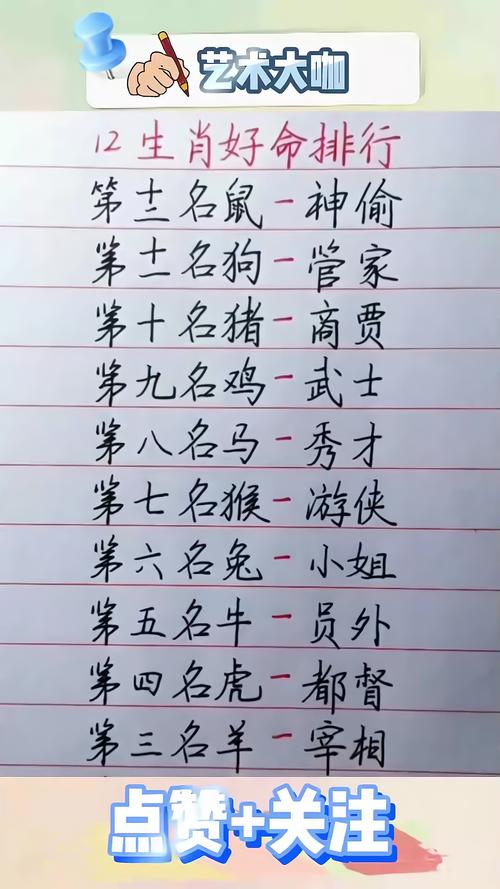 艺术大咖
12生肖好命排行
第十二名鼠-神偷
第十一名狗-管家
第十名猪-商贾
第九名鸡-武士
第八名马-秀才
第七名猴-游侠
第六名兔-小姐
第五名牛-员外
第四名虎-都督
第三名羊-宰相
点赞+关注